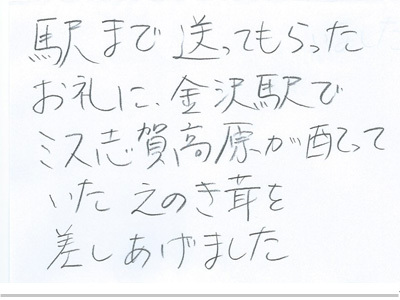 駅まで送ってもらった
お礼に、金沢駅で
ミス志賀高原が配って
いたえのき茸を
差しあげました